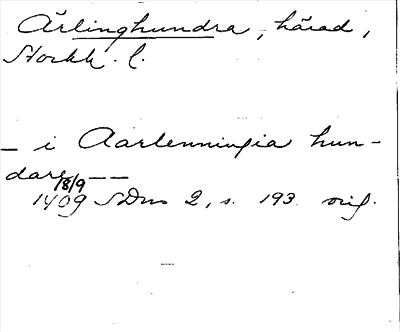 Ärlinghundra, härad,
Stockh. l.
– i Aarlenningia hun-
dare – –
18/9
1409 SDns 2, s. 193. orig.